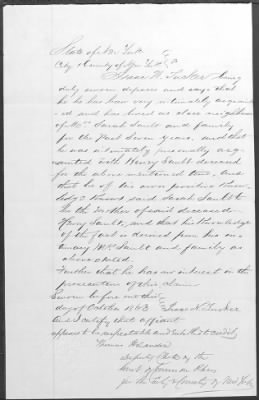 State of New York
City & County of New York } ss
Isaac N. Tucker being
duly sworn deposes and says that
he he has been very intimately acquaint
ed and has lived as close neighbor
of Mrs Sarah Sault and family
for the Past Seven years, and that
he was intimately personally acq
uainted with Henry Sault deceased
for the above mentioned time, and
that he of his own positive Know
ledge Knows said Sarah Sault to
be the Mother of said deceased
Henry Sault, and that his Knowledge
of the fact is derived from his in
timacy with Sault and family as
above stated.
Further that he has no interest in the
prosecution of this claim
Sworn before me this
day of October 1863 } Isaac N. Tucker
And I certify that affiant
appears to be respectable and entitled to credit
Thomas
Deputy Clerk of the
Court of Common Pleas
for the City & County of New York